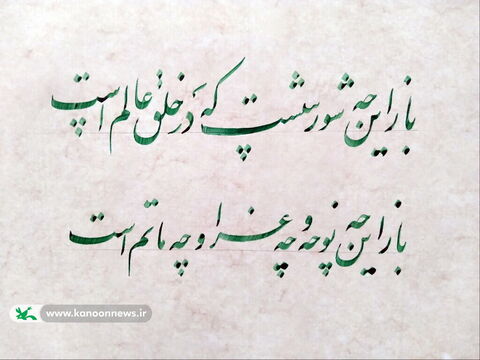 باز این چه شورشست که در خلق عالم است
باز این چه نوحه و چه عزا و چه ماتم است
www.kanoonnews.ir